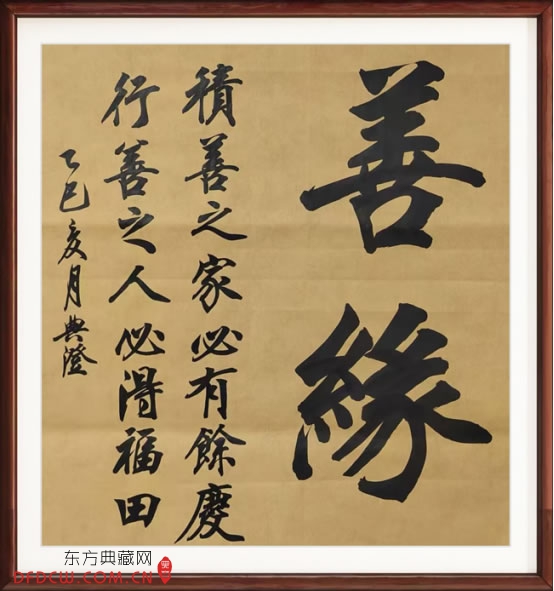 善緣
積善之家必有餘慶
行善之人必得福田
乙巳亥月典澄
东方典藏网
DFDCW.COM.CN